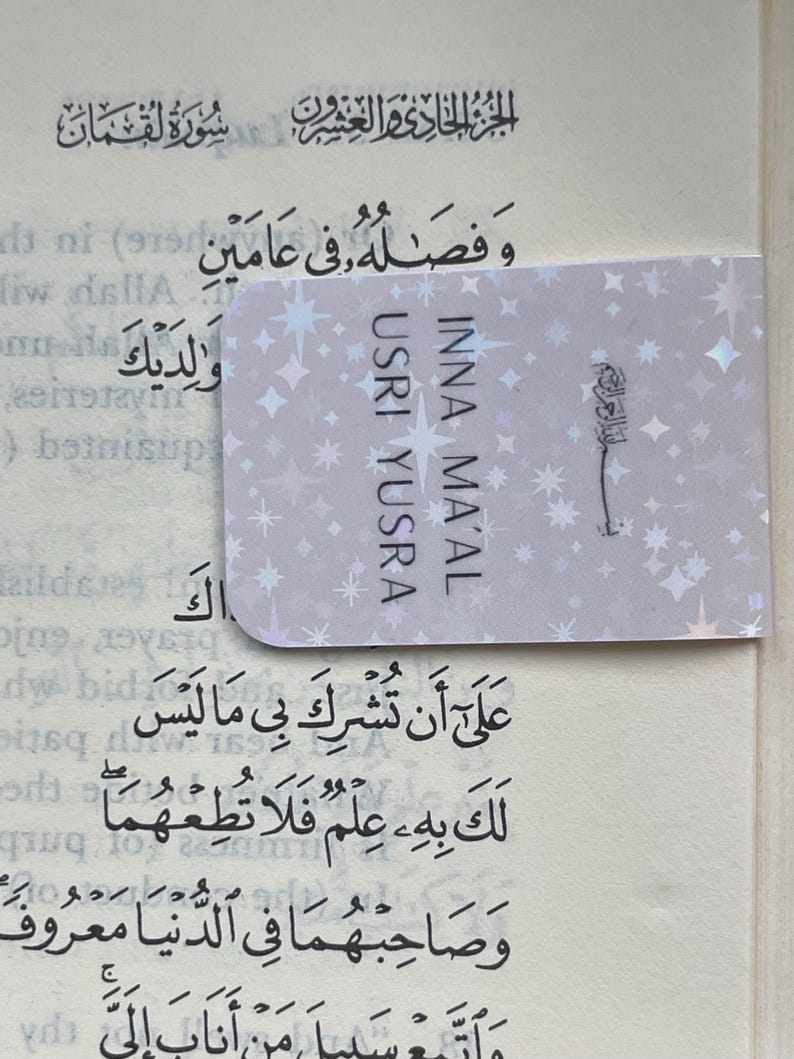 الجُزْءُ الحَادِي وَالعِشْرُونَ سُورَةُ لُقْمَانَ
وَفِصَٰلُهُۥ فِى عَامَيْنِ
وَٰلِدَيْكَ
بسم الله الرحمن الرحيم
INNA MA'AL
USRI YUSRA
عَلَىٰٓ أَن تُشْرِكَ بِى مَا لَيْسَ
لَكَ بِهِۦ عِلْمٌ فَلَا تُطِعْهُمَا ۖ
وَصَاحِبْهُمَا فِى ٱلدُّنْيَا مَعْرُوفًا ۖ
وَٱتَّبِعْ سَبِيلَ مَنْ أَنَابَ إِلَىَّ ۚ